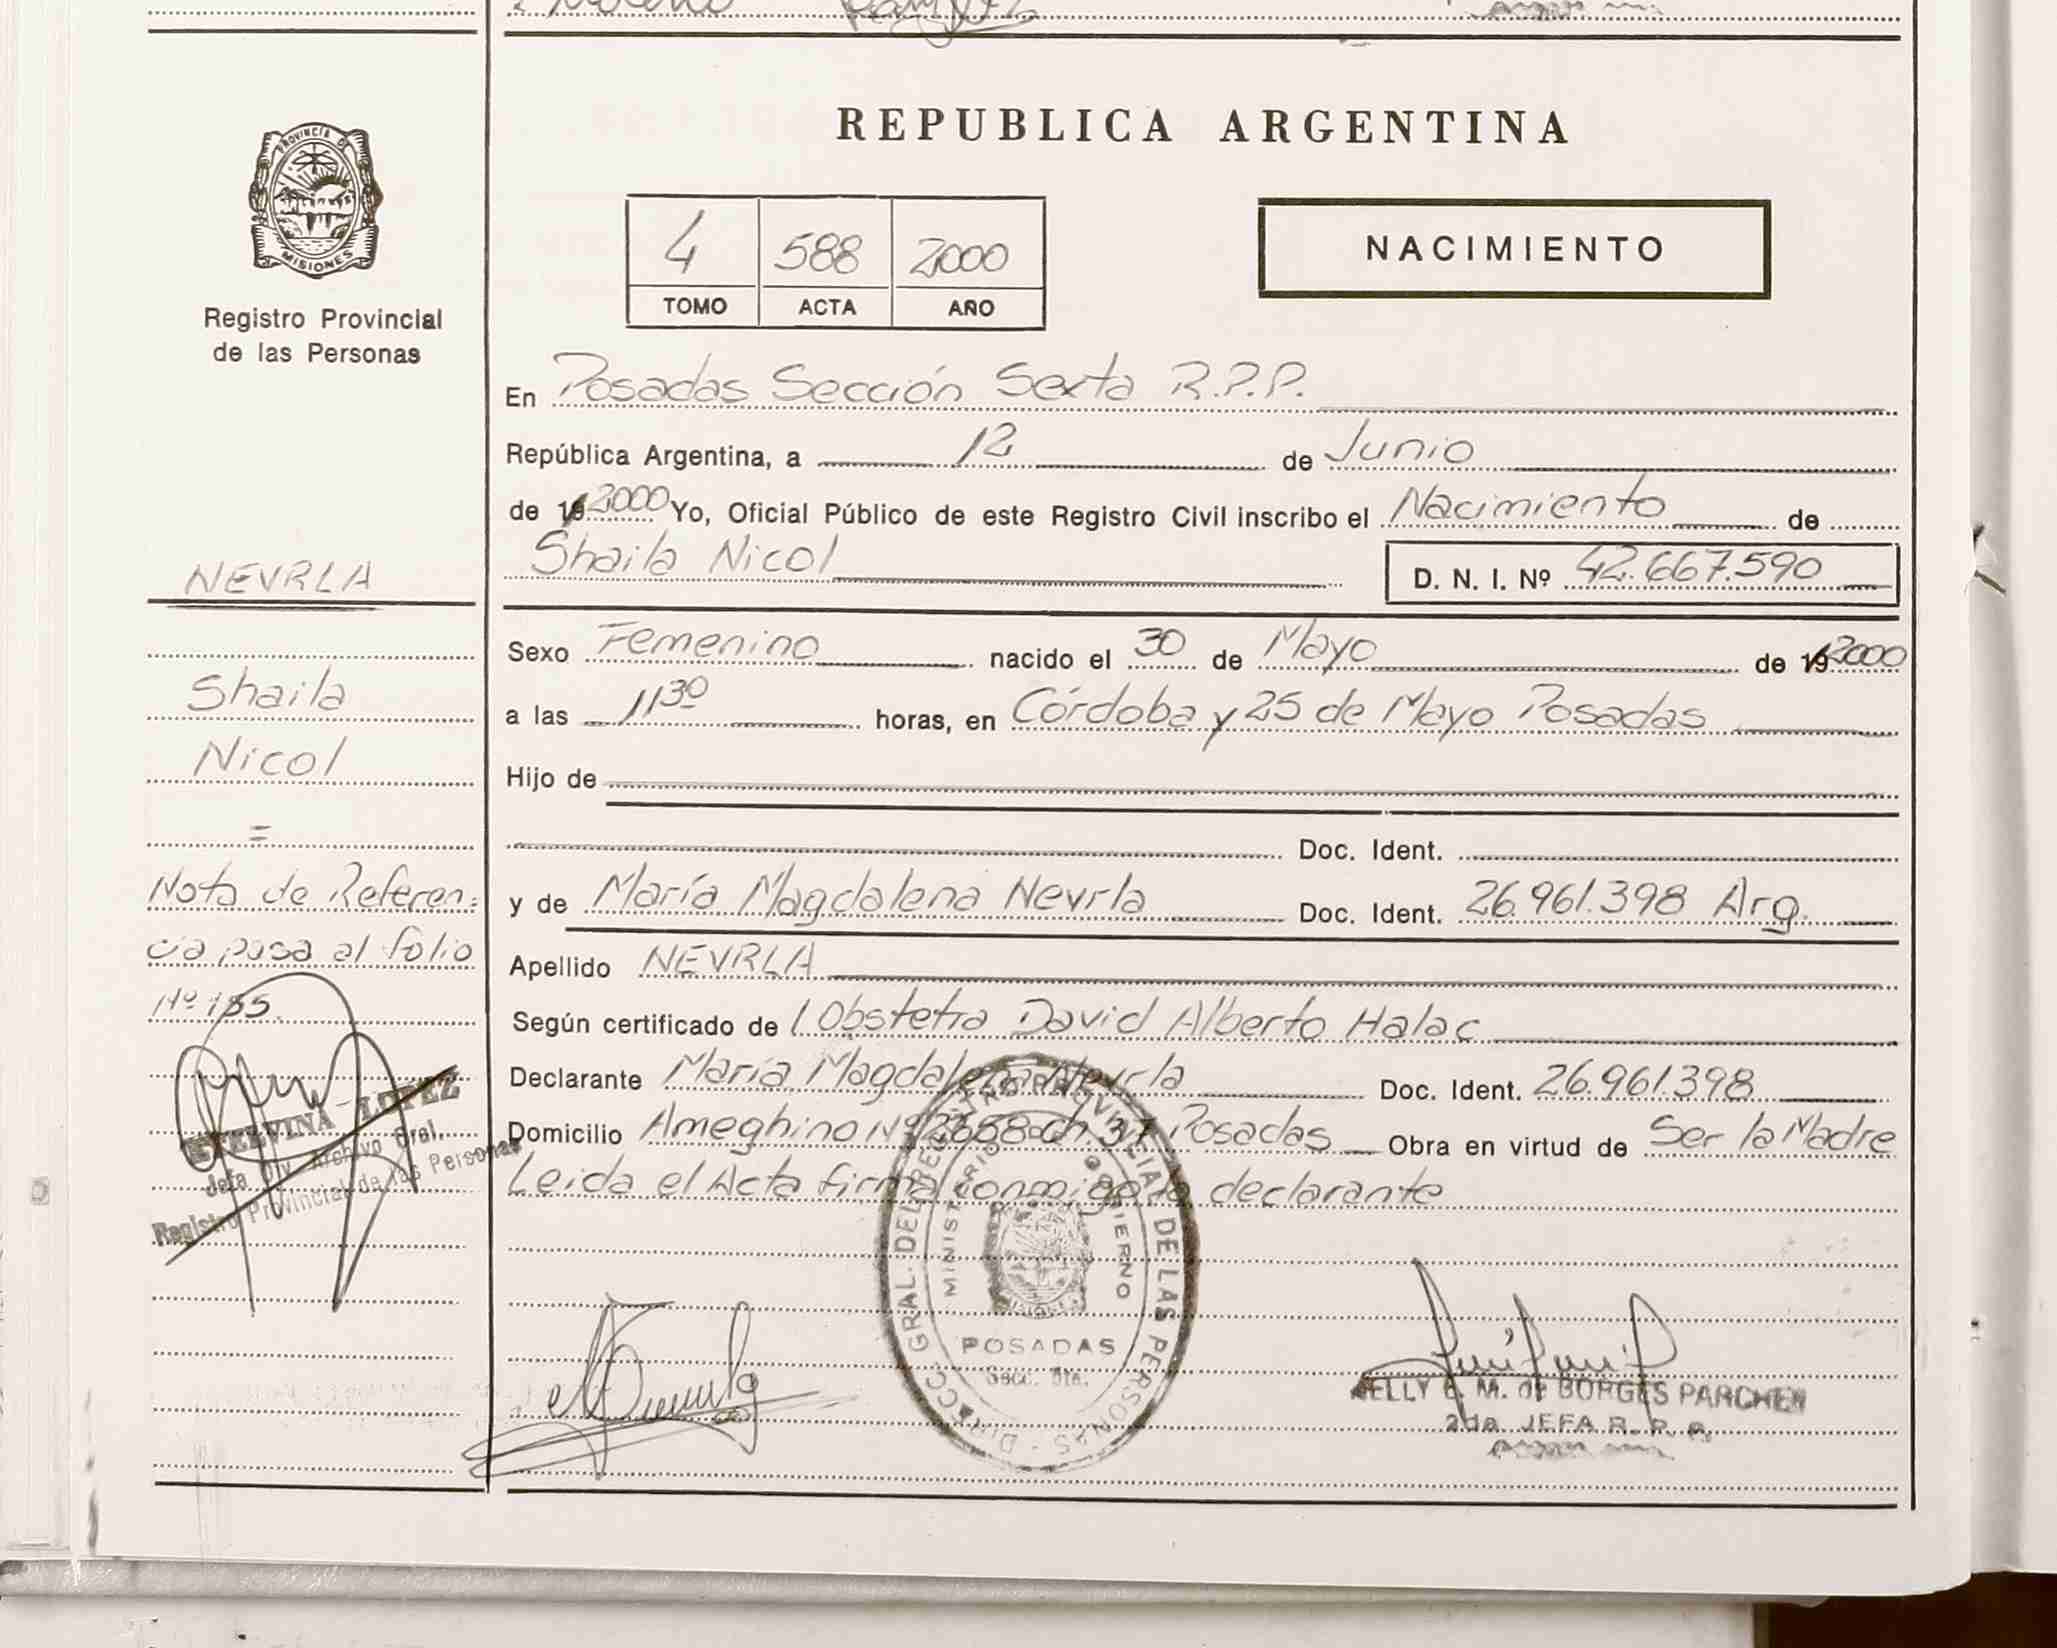 REPUBLICA ARGENTINA
PROVINCIA DE
MISIONES
Registro Provincial
de las Personas
4 588 2000
TOMO ACTA AÑO
NACIMIENTO
En Posadas Sección Sexta R.P.P.
República Argentina, a 12 de Junio
de 19 2000 Yo, Oficial Público de este Registro Civil inscribo el Nacimiento de
Shaila Nicol D. N. I. Nº 42.667.590
Sexo Femenino nacido el 30 de Mayo de 19 2000
a las 11 30 horas, en Córdoba y 25 de Mayo Posadas
Hijo de
Doc. Ident.
y de María Magdalena Nevrla Doc. Ident. 26.961.398 Arg.
Apellido NEVRLA
Según certificado de l Obstetra David Alberto Halac
Declarante María Magdalena Nevrla Doc. Ident. 26.961.398
Domicilio Ameghino Nº 2658 ch. 37 Posadas Obra en virtud de Ser la Madre
Leida el Acta firma conmigo la declarante
NEVRLA
Shaila
Nicol
=
Nota de Referen=
cia pasa al folio
Nº 155.
ETELVINA LOPEZ
Jefa Div. Archivo Gral.
Registro Provincial de las Personas
DIRECC. GRAL. DEL REGISTRO PROVINCIAL DE LAS PERSONAS
MINISTERIO GOBIERNO
MISIONES
POSADAS
Secc. 6ta.
NELLY E. M. de BORGES PARCHEN
2da. JEFA R. P. P.